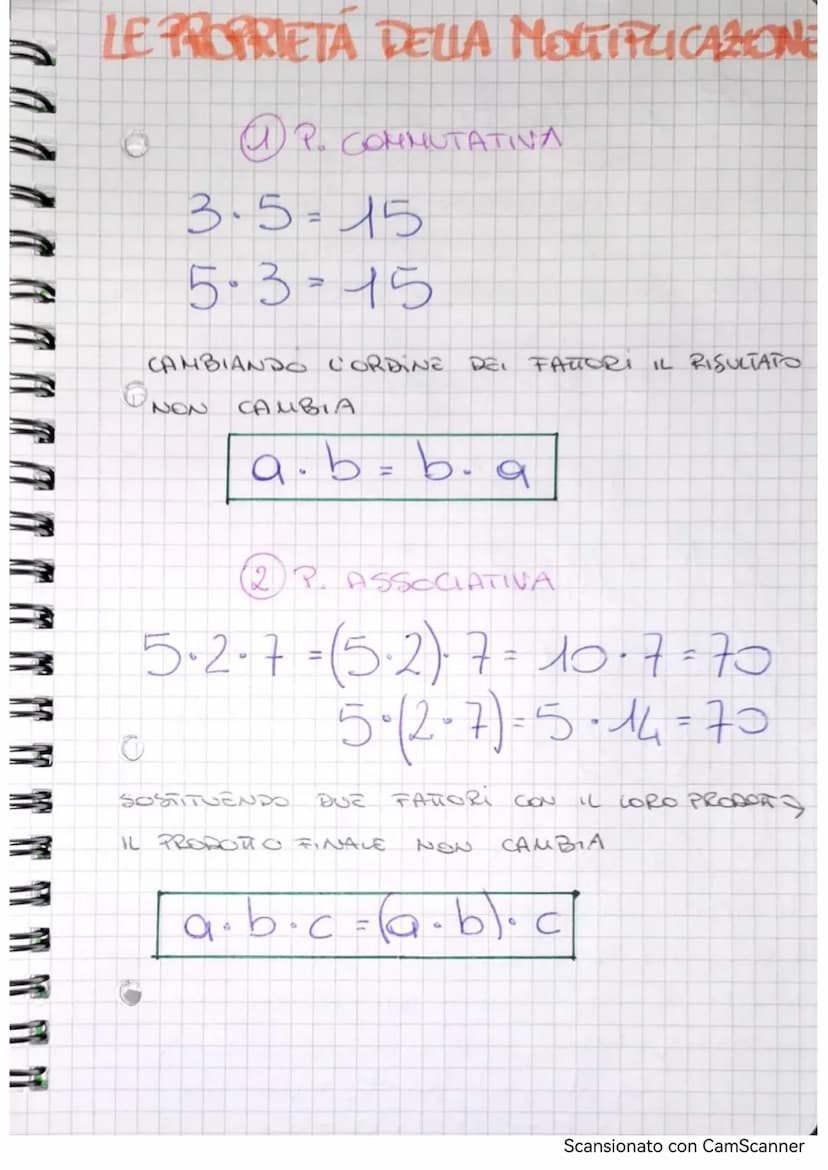 LE PROPRIETÁ DELLA MOLTIPLICAZIONE
1 P. COMMUTATIVA
3·5=15
5·3=15
CAMBIANDO L'ORDINE DEI FATTORI IL RISULTATO
NON CAMBIA
a·b=b·a
2 P. ASSOCIATIVA
5·2·7=(5·2)·7=10·7=70
5·(2·7)=5·14=70
SOSTITUENDO DUE FATTORI CON IL LORO PRODOTTO
IL PRODOTTO FINALE NON CAMBIA
a·b·c=(a·b)·c
Scansionato con CamScanner